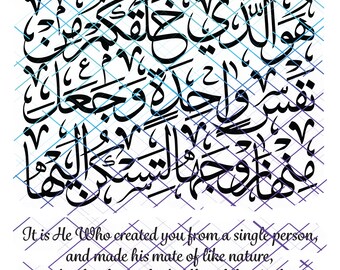 هُوَ الَّذِي خَلَقَكُم مِّن
نَّفْسٍ وَاحِدَةٍ وَجَعَلَ
مِنْهَا زَوْجَهَا لِيَسْكُنَ إِلَيْهَا
It is He Who created you from a single person,
and made his mate of like nature,